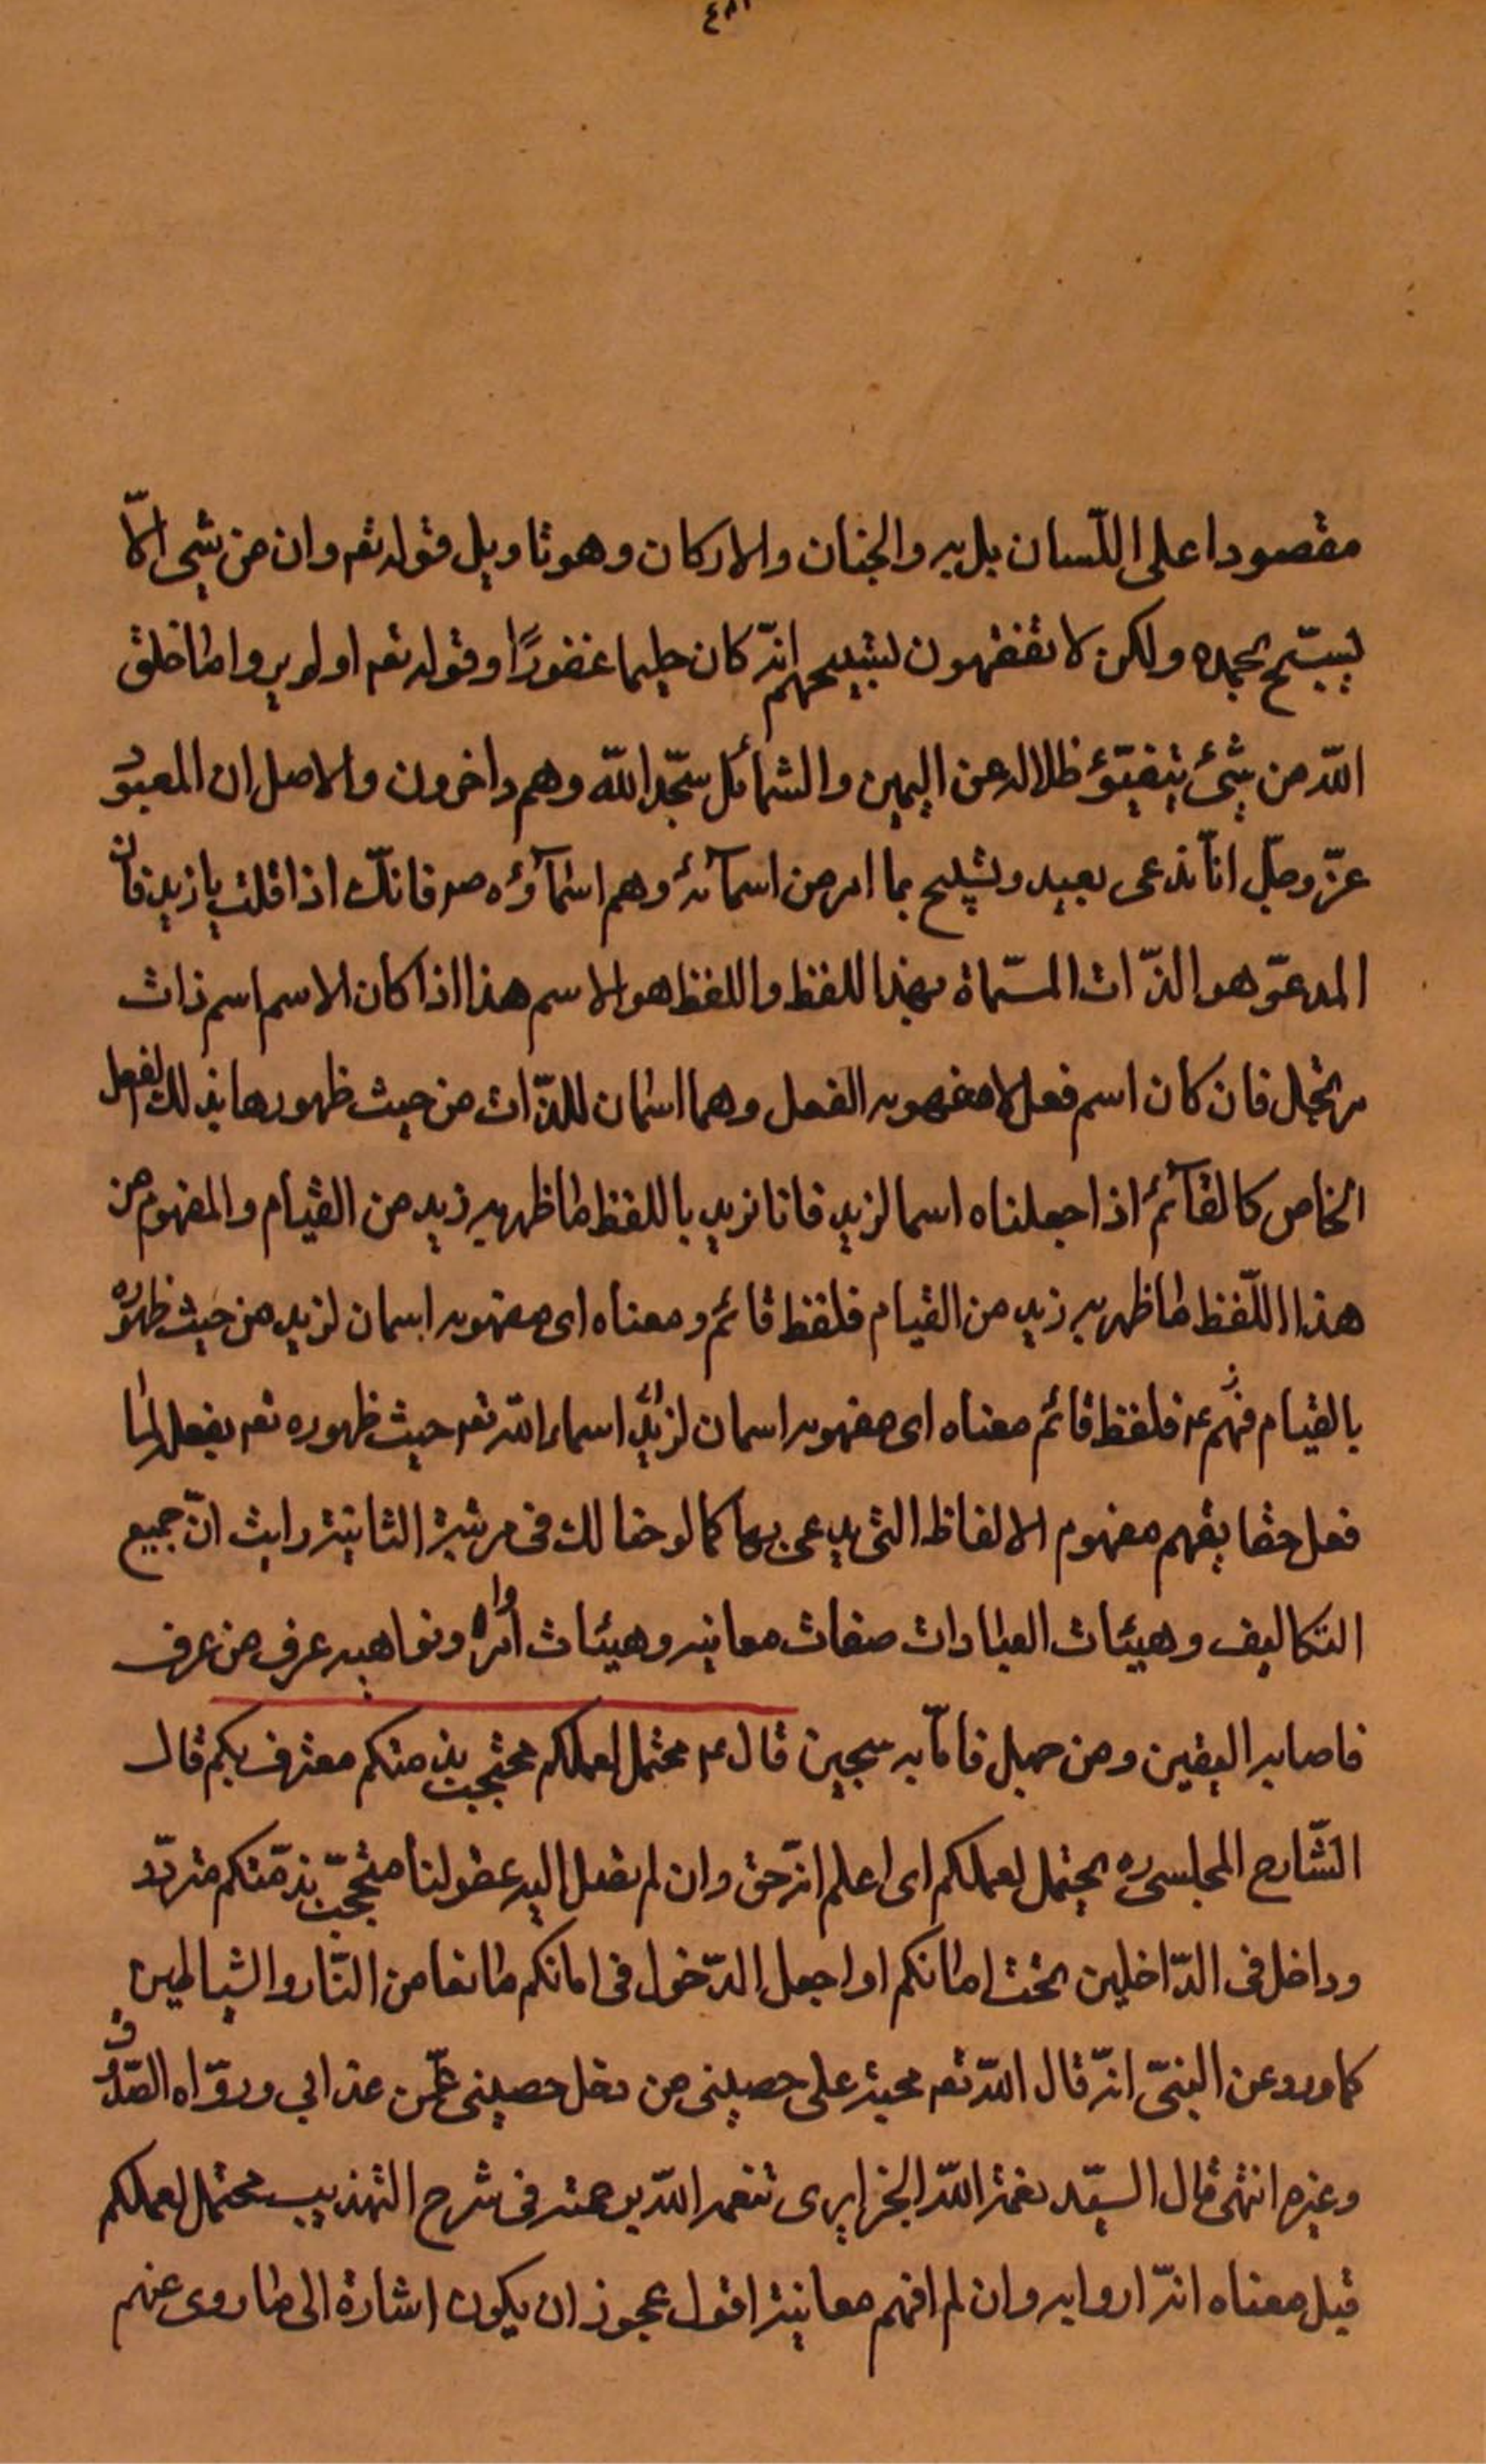 مقصودا على اللّسان بل به والجنان والاركان وهو تاويل قوله تعه وان من شئ الاّ
يسبّح بحمده ولكن لا تفقهون تسبيحهم انّه كان حليما غفورًا وقوله تعه اولم يروا ما خلق
اللّه من شئ يتفيّؤ ظلاله عن اليمين والشمائل سجّدا للّه وهم داخرون والاصل ان المعبود
عزّ وجلّ انّما ندعى يعبد ويسبح بما امر من اسمآئه وهم اسمآؤه صه فانّك اذا قلت يا زيد فان
المدعوّ هو الذّات المسمّاة بهذا اللفظ واللفظ هو الاسم هذا اذا كان الاسم اسم ذات
مرتجل فان كان اسم فعل لا مفهومه الفعل وهما اسمان للذّات من حيث ظهورها بذلك الفعل
الخاص كالقآئم اذا جعلناه اسما لزيد فانا نريد باللفظ ما ظهر به زيد من القيام والمفهوم من
هذا اللّفظ ما ظهر به زيد من القيام فلفظ قائم ومعناه اى مفهومه اسمان لزيد من حيث ظهوره
بالقيام فهم ع فلفظ قائم معناه اى مفهومه اسمان لزيد اسماء اللّه تعه حيث ظهوره تعه بفعل لما
فعل حقا يفهم مفهوم الالفاظ التى يدعى بها كما لوحنا لك فى مرتبة الثانية رايت انّ جميع
التكاليف وهيئات العبادات صفات معانيه وهيئات اوامره ونواهيه عرف من عرف
فاصابه اليقين ومن جهل فامّا به سجين قال ع محتمل لعملكم محتجب بذمتكم معترف بكم قال
الشّارح المجلسى ره محتمل لعملكم اى اعلم انّه حق وان لم يصل اليه عقولنا محتجب بذمّتكم متردّد
وداخل فى الدّاخلين تحت امانكم او اجعل الدّخول فى امانكم مانعا من النّار والشياطين
كما ورد عن النبىّ انّه قال اللّه تعه محبة على حصينى من دخل حصينى امن عذابي وروّاه الصّدوق
وغيره انتهى قال السيّد نعمة اللّه الجزايرى تغمه اللّه برحمته فى شرح التهذيب محتمل لعملكم
قيل معناه انّه ارواية وان لم افهم معانيه اقول يجوز ان يكون اشارة الى ما روى عنهم